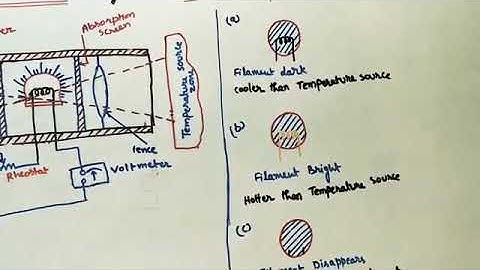 Absorption
screen
Temperature source
zone
lence
Rheostat
Voltmeter
(a)
Filament dark
cooler than Temperature source
(b)
Filament Bright
Hotter than Temperature source
(c)
Disappears